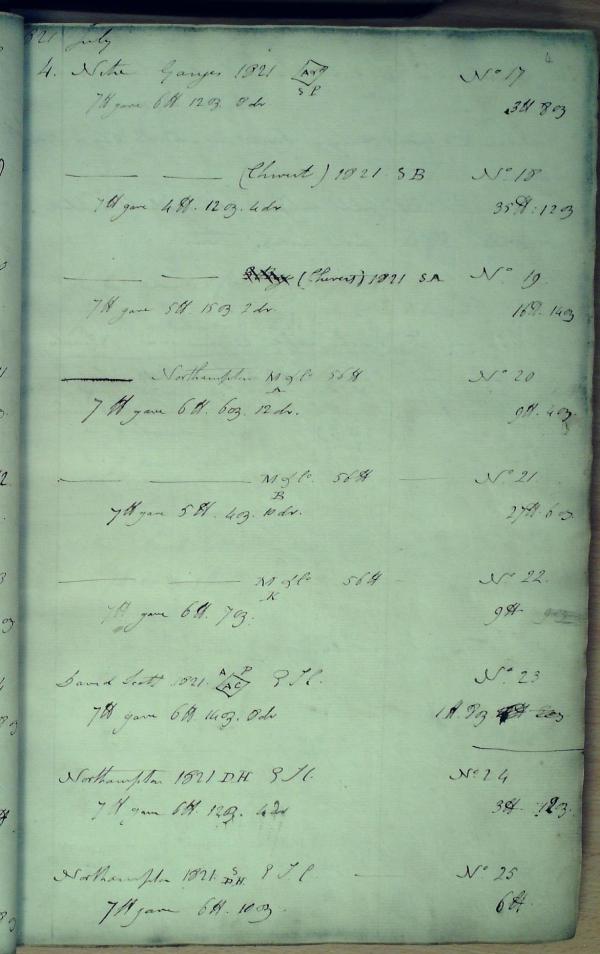 1821 July
4. Nitre Ganges 1821 AG SP No 17
7 lb gave 6 lb 12 oz 8 dr 3 lb 8 oz
— — (Chwert) 1821 SB No 18
7 lb gave 4 lb. 12 oz. 4 dr. 35 lb. 12 oz
— — (Chwert) 1821 SA No 19
7 lb gave 5 lb 15 oz 2 dr. 16 lb. 14 oz
— Northampton M of Co 56 lb No 20
A
7 lb gave 6 lb. 6 oz. 12 dr. 9 lb. 4 oz.
— — M of Co. 56 lb — No 21
B
7 lb gave 5 lb. 4 oz. 10 dr. 27 lb. 6 oz.
— — M of Co 56 lb No 22
K
7 lb gave 6 lb. 7 oz. 9 lb
David Scott 1821. A P AC No 23
7 lb gave 6 lb. 14 oz. 8 dr 1 lb. 9 oz
Northampton 1821 D.H. No 24
7 lb gave 6 lb. 12 oz. 4 dr 3 lb. 12 oz.
Northampton 1821. S D.H. — No 25
7 lb gave 6 lb. 10 oz. 6 lb.